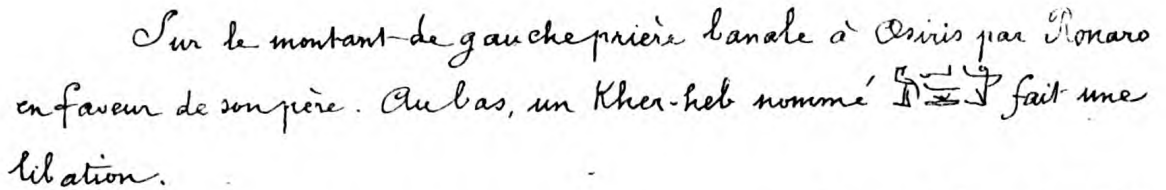 Sur le montant de gauche prière banale à Osiris par Ronaro
en faveur de son père. Au bas, un Kher-heb nommé fait une
libation.